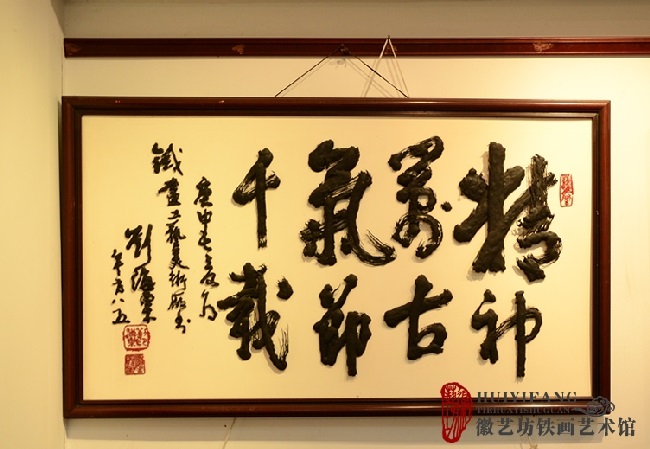 精神
萬古
氣節
千載
庚申七夏為
鐵畫工藝美術廠書
劉海粟
年方八五
HUIYIFANG
TIEHUAYISHUGUAN
徽艺坊铁画艺术馆